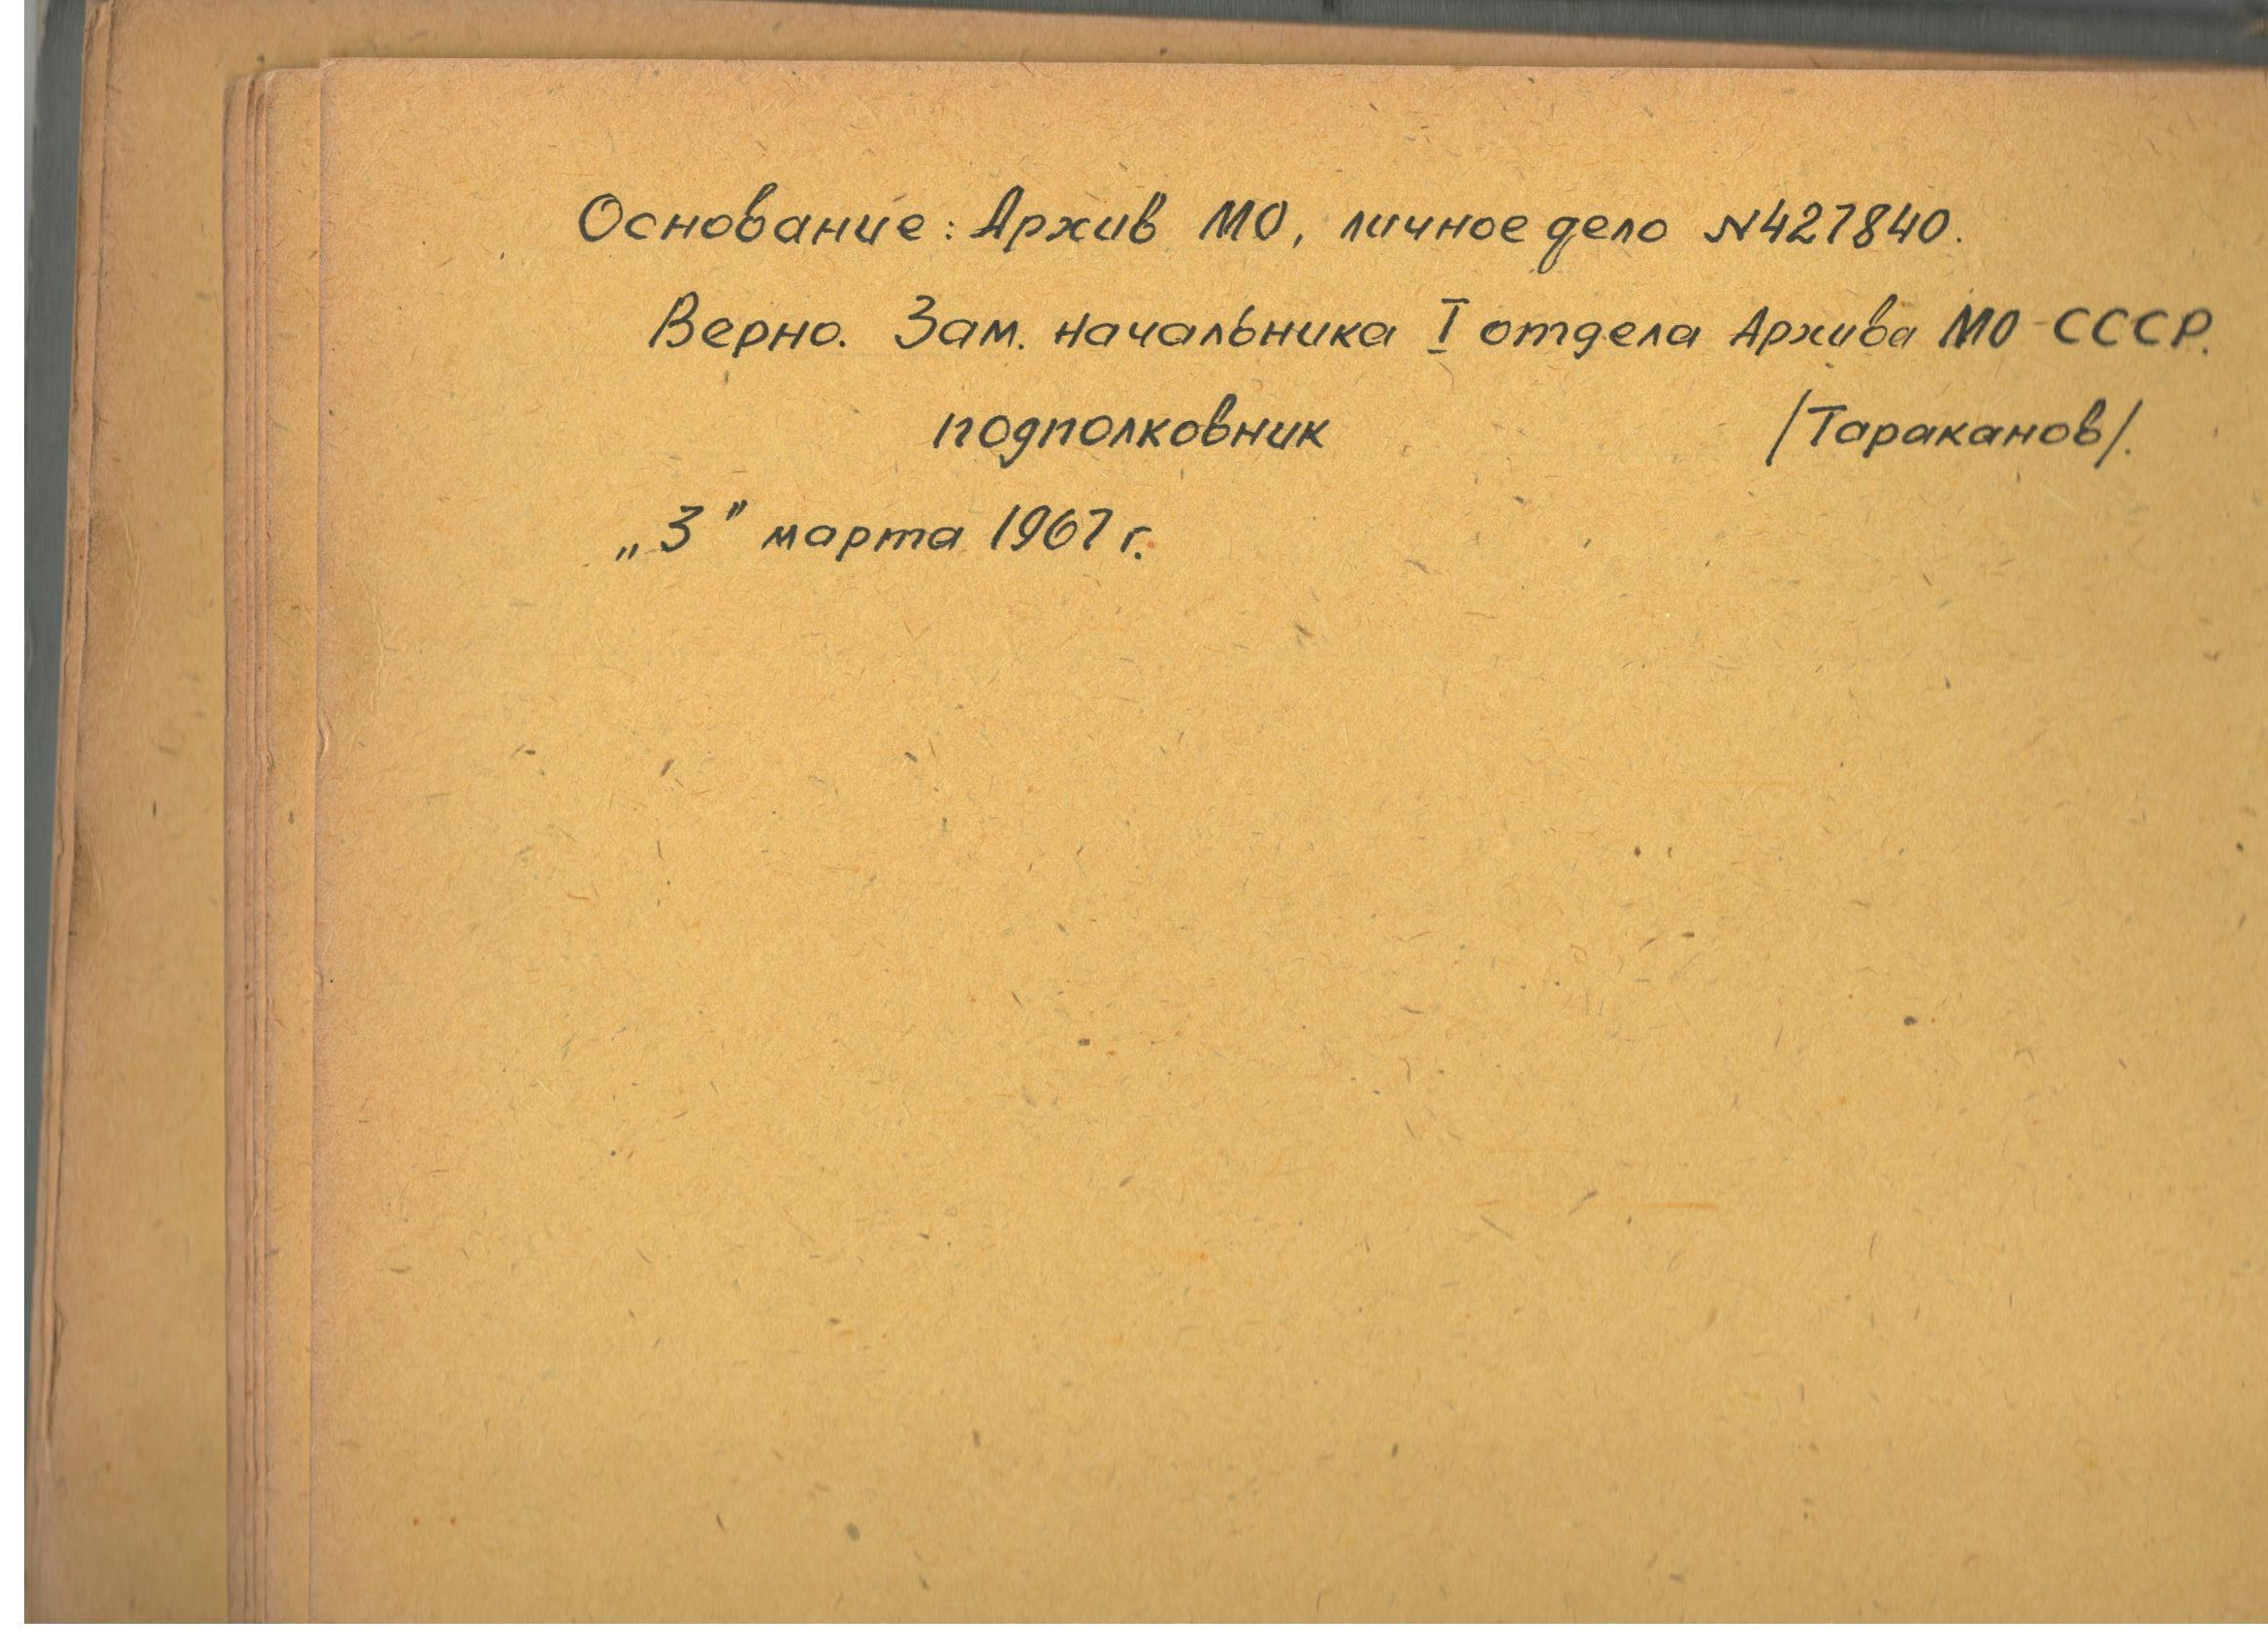 Основание: Архив МО, личное дело N427840.
Верно. Зам. начальника I отдела Архива МО СССР.
подполковник /Тараканов/.
„3" марта 1967 г.